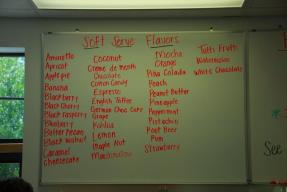 Soft Serve Flavors
Amaretto
Apricot
Apple pie
Banana
Blackberry
Black Cherry
Black raspberry
Blueberry
Butter Pecan
Black Walnut
Caramel
Cheesecake
Coconut
Creme de menth
Chocolate
Cotton Candy
Espresso
English Toffee
German Choc Cake
Grape
Kahlua
Lemon
Maple Nut
Marshmallow
Mocha
Orange
Pina Colada
Peach
Peanut Butter
Pineapple
Peppermint
Pistachio
Root Beer
Rum
Strawberry
Tutti Frutti
Watermelon
White Chocolate
See